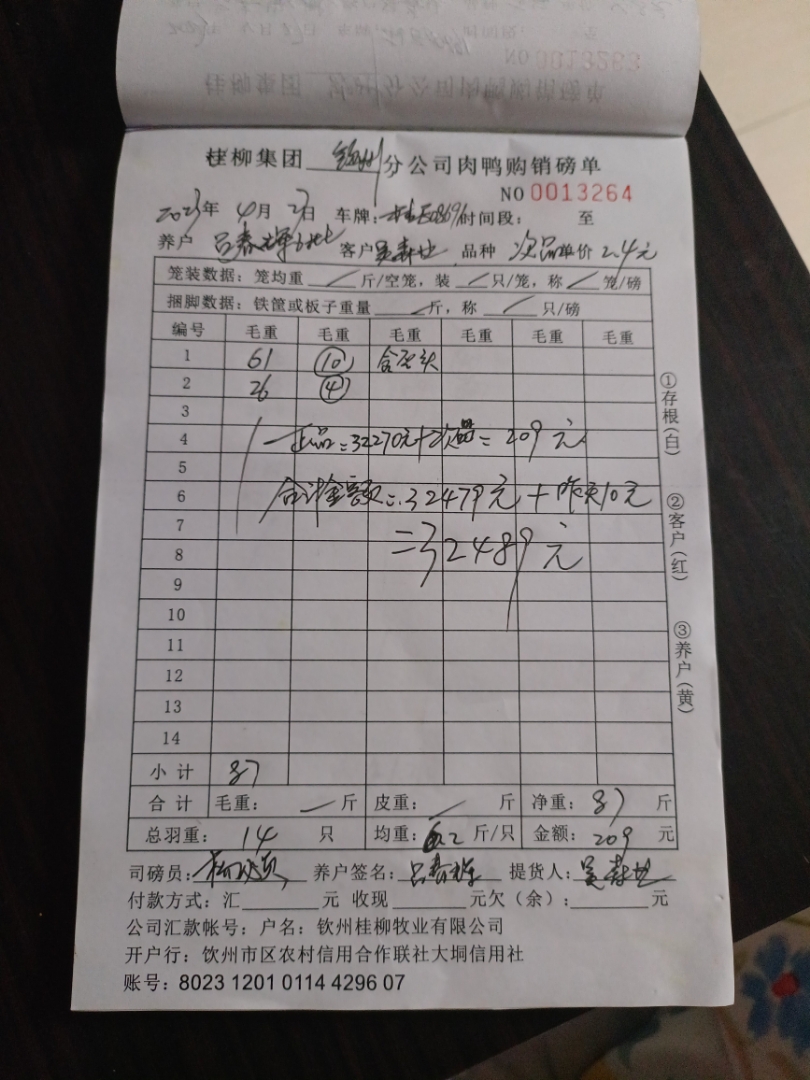 桂柳集团 钦州 分公司肉鸭购销磅单
NO 0013264
2023年 4月 27日 车牌: 时间段: 至
养户 吕春 客户 吴 品种 次品 单价 2.4元
笼装数据: 笼均重 / 斤/空笼, 装 / 只/笼, 称 / 笼/磅
捆脚数据: 铁筐或板子重量 / 斤, 称 / 只/磅
编号 毛重 毛重 毛重 毛重 毛重 毛重
1 61 10
2 26 4
3
4 正品=32270元+次品=209元
5
6 合计金额=32479元+昨天10元
7
=32489元
8
9
10
11
12
13
14
小计 87
合计 毛重: / 斤 皮重: / 斤 净重: 87 斤
总羽重: 14 只 均重: 6.2 斤/只 金额: 209 元
司磅员: 养户签名: 吕春 提货人: 吴
付款方式: 汇 元 收现 元欠(余): 元
公司汇款帐号: 户名: 钦州桂柳牧业有限公司
开户行: 饮州市区农村信用合作联社大垌信用社
账号: 8023 1201 0114 4296 07
①存根(白)
②客户(红)
③养户(黄)